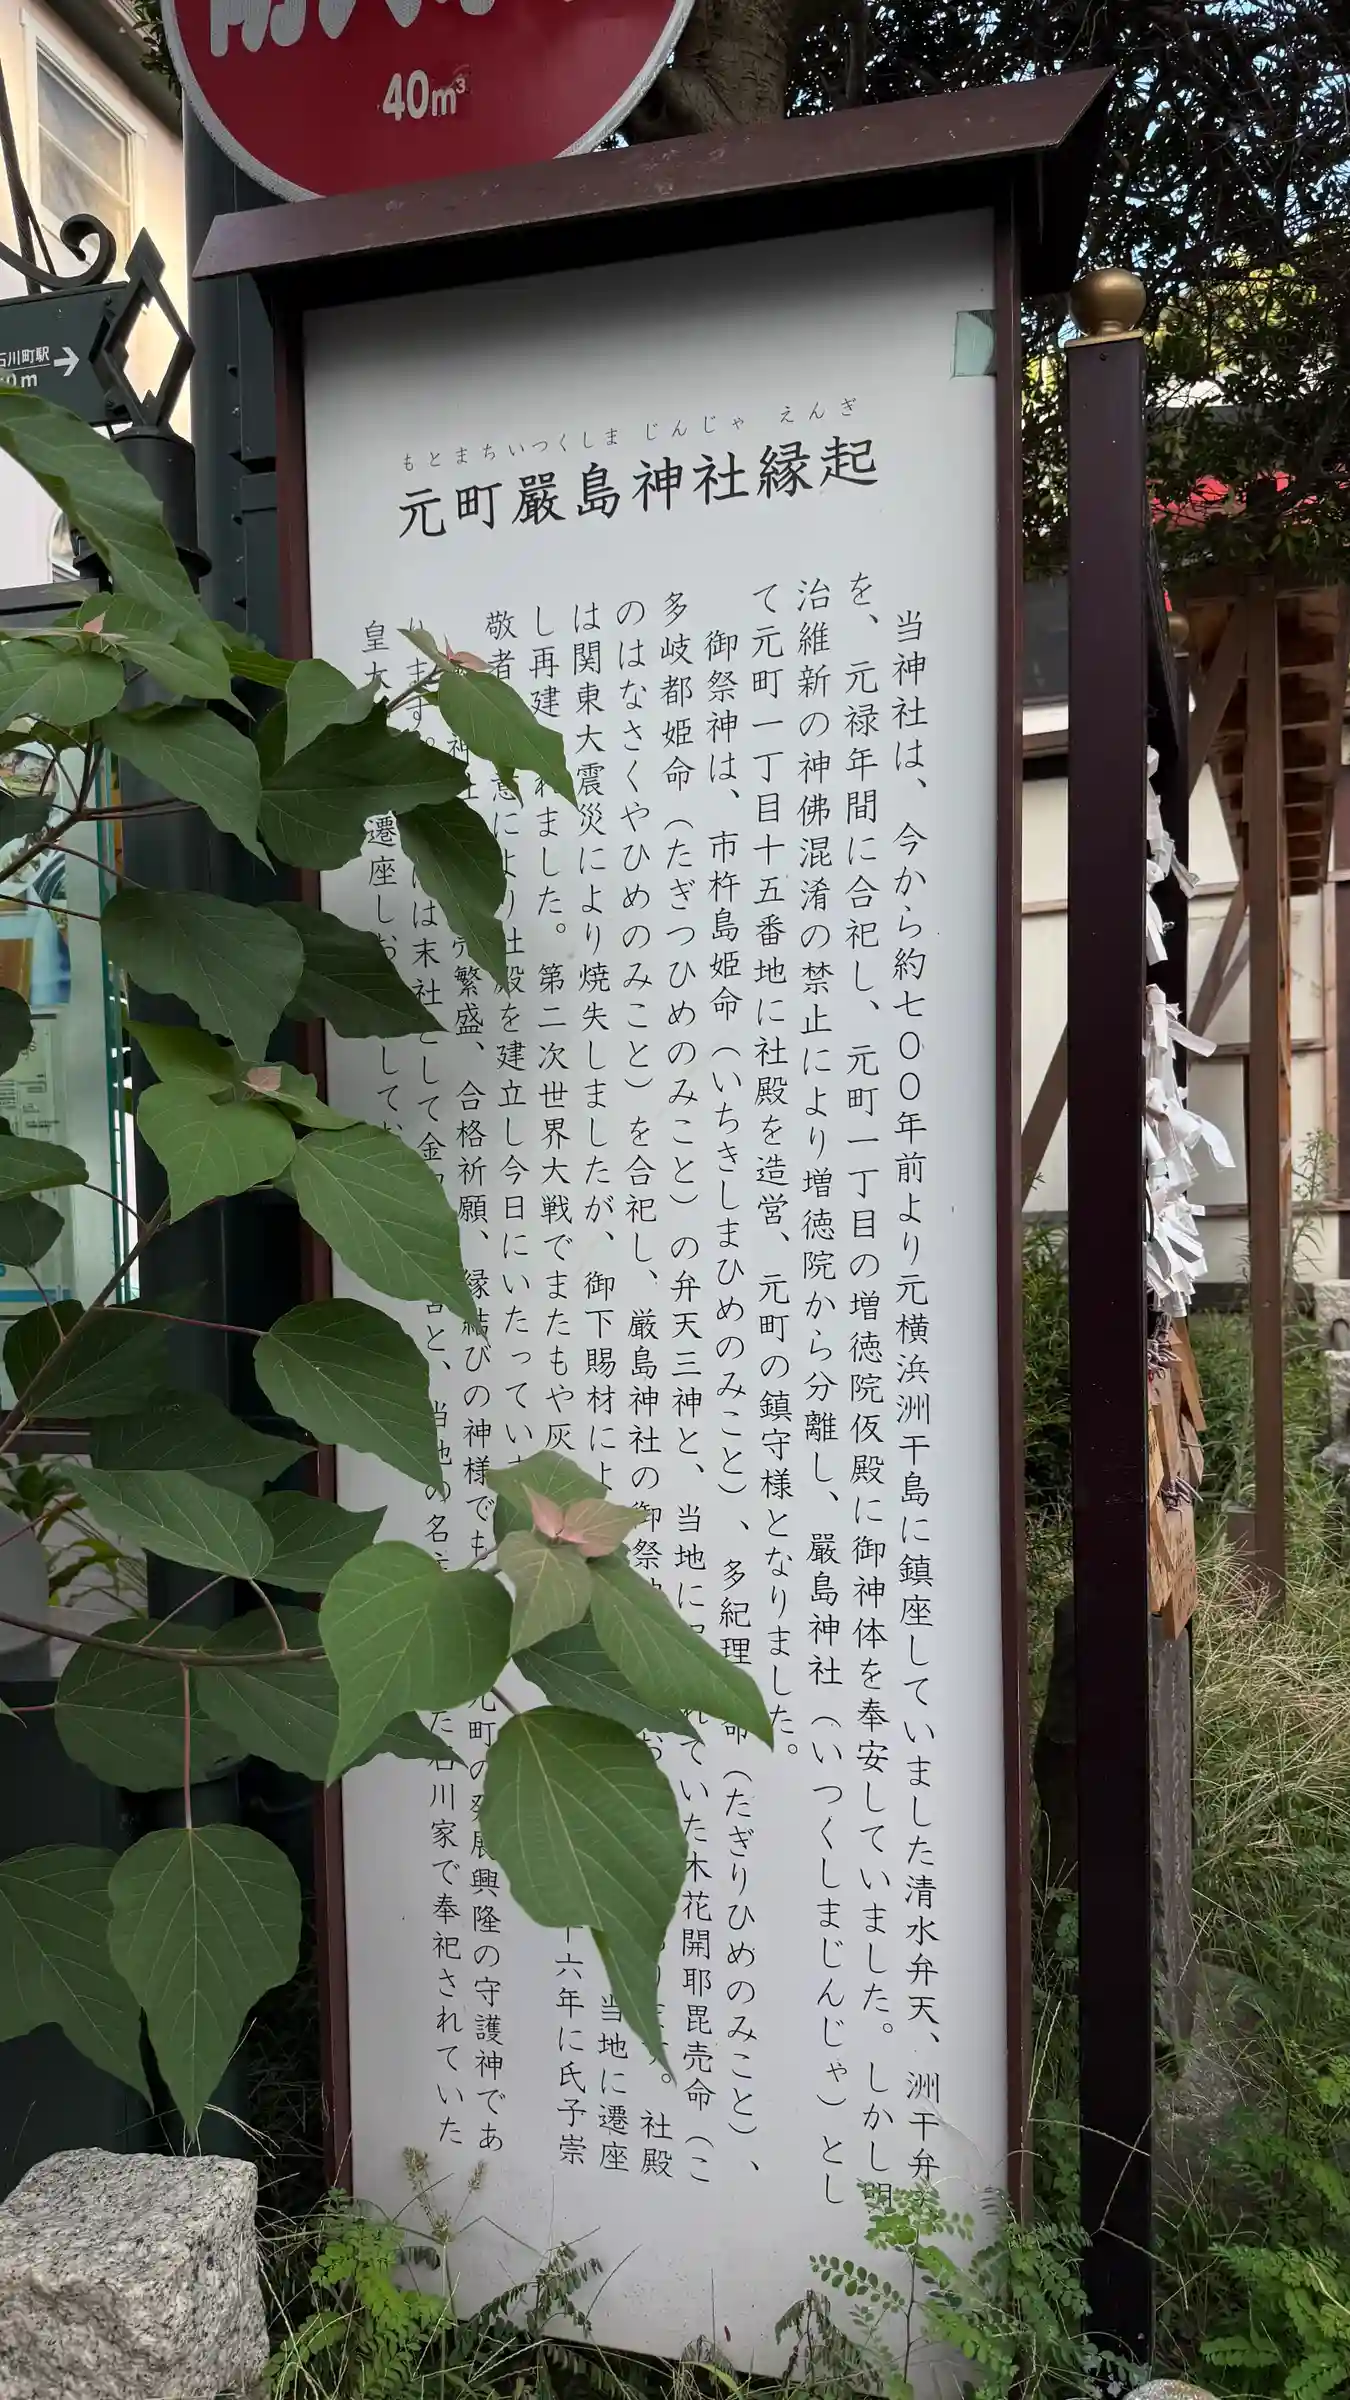 40m³
石川町駅
もとまちいつくしま じんじゃ えんぎ
元町嚴島神社縁起
当神社は、今から約七〇〇年前より元横浜洲干島に鎮座していました清水弁天、洲干弁
を、元禄年間に合祀し、元町一丁目の増徳院仮殿に御神体を奉安していました。しかし明
治維新の神佛混淆の禁止により増徳院から分離し、嚴島神社（いつくしまじんじゃ）とし
て元町一丁目十五番地に社殿を造営、元町の鎮守様となりました。
御祭神は、市杵島姫命（いちきしまひめのみこと）、多紀理 命（たぎりひめのみこと）、
多岐都姫命（たぎつひめのみこと）の弁天三神と、当地に れていた木花開耶毘売命（こ
のはなさくやひめのみこと）を合祀し、厳島神社の御祭 お 。社殿
は関東大震災により焼失しましたが、御下賜材によ 当地に遷座
し再建 れました。第二次世界大戦でまたもや灰 十六年に氏子崇
敬者 意により社殿を建立し今日にいたってい
神社 繁盛、合格祈願、縁結びの神様でも 元町の発展興隆の守護神であ
ります。 は末社として金 と、当地の名 た石川家で奉祀されていた
皇大 遷座しお して